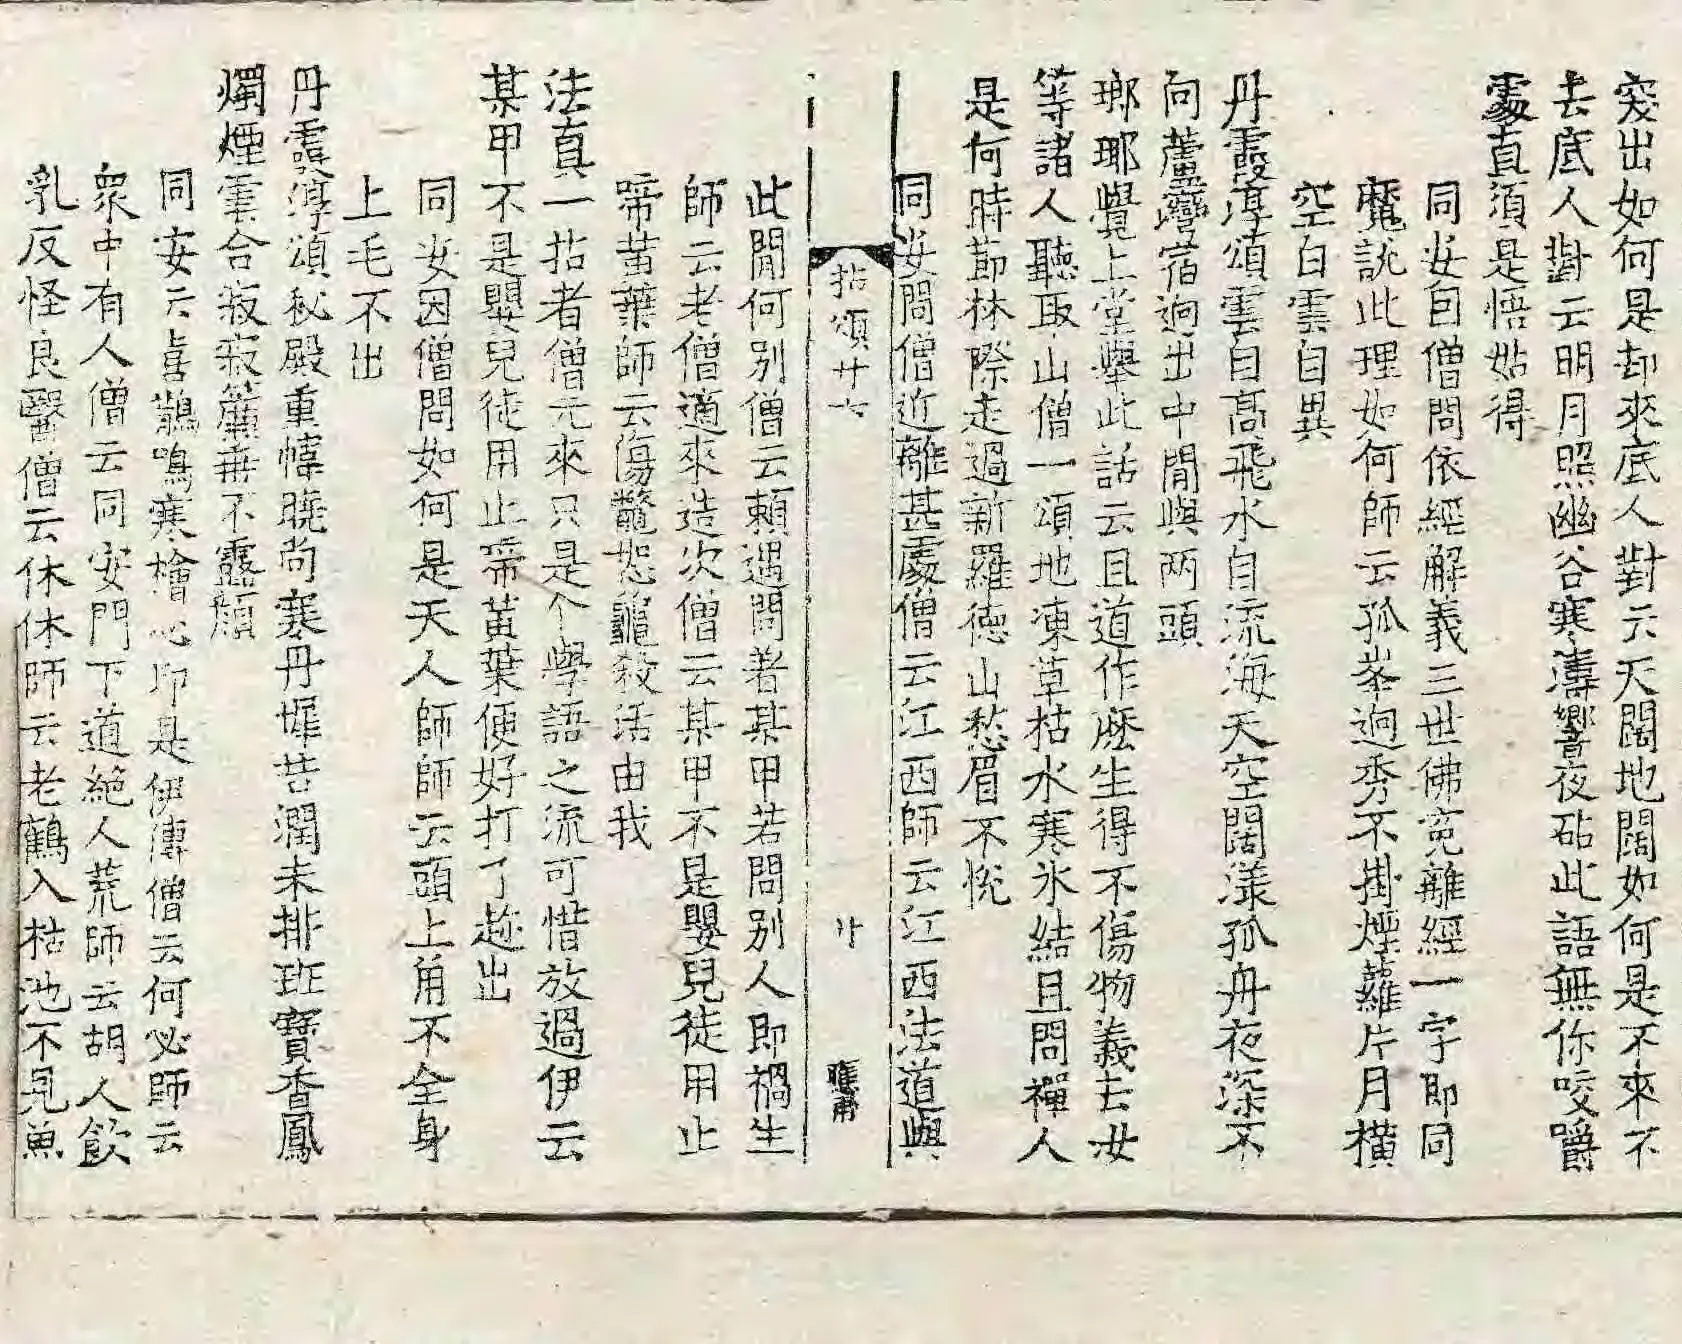 突出如何是却來底人對云天闊地闊如何是不來不
去底人對云明月照幽谷寒濤響夜砧此語無你咬嚼
處直須是悟始得
同安因僧問依經解義三世佛寃離經一字即同
魔說此理如何師云孤峯逈秀不掛煙蘿片月橫
空白雲自異
丹霞淳頌雲自高飛水自流海天空闊漾孤舟夜深不
向蘆灣宿逈出中間與两頭
瑯瑘覺上堂舉此話云且道作麽生得不傷物義去汝
等諸人聽取山僧一頌地凍草枯水寒氷結且問禪人
是何時節林際走過新羅德山愁眉不悅
同安問僧近離甚處僧云江西師云江西法道與
拈頌廿七
此間何别僧云賴遇問著某甲若問別人即禍生
師云老僧適來造次僧云某甲不是嬰兒徒用止
啼黃葉師云傷鼈恕龜殺活由我
法真一拈者僧元來只是个學語之流可惜放過伊云
某甲不是嬰兒徒用止啼黃葉便好打了趂出
同安因僧問如何是天人師師云頭上角不全身
上毛不出
丹霞淳頌秘殿重幃曉尚寒丹墀苔潤未排班寶香鳳
燭煙雲合寂寂簾垂不露顏
同安云喜鵲鳴寒檜心印是伊傳僧云何必師云
衆中有人僧云同安門下道絶人荒師云胡人飮
乳反怪良醫僧云休休師云老鶴入枯池不見魚